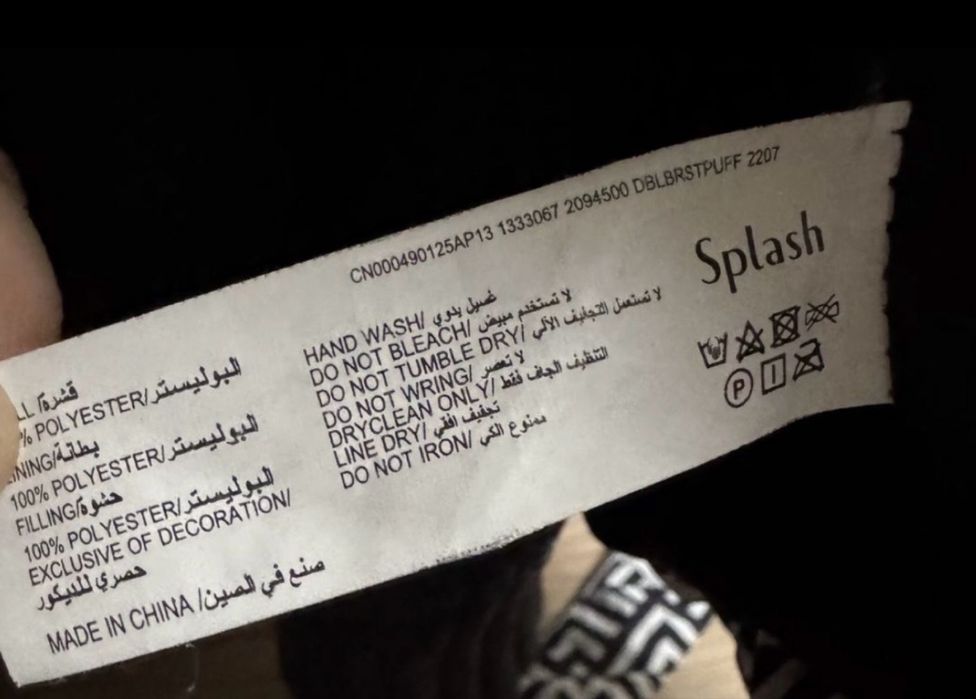 CN000490125AP13 1333067 2094500 DBLBRSTPUFF 2207
Splash
قشرة/
% POLYESTER/البوليستر
NING/بطانة
100% POLYESTER/البوليستر
FILLING/حشوة
100% POLYESTER/البوليستر
EXCLUSIVE OF DECORATION/
حصري للديكور
MADE IN CHINA /صنع في الصين
HAND WASH/ غسيل يدوي
DO NOT BLEACH/ لا تستخدم مبيض
DO NOT TUMBLE DRY/ لا تستعمل التجفيف الآلي
DO NOT WRING/ لا تعصر
DRYCLEAN ONLY/ التنظيف الجاف فقط
LINE DRY/ تجفيف افقي
DO NOT IRON/ ممنوع الكي
P